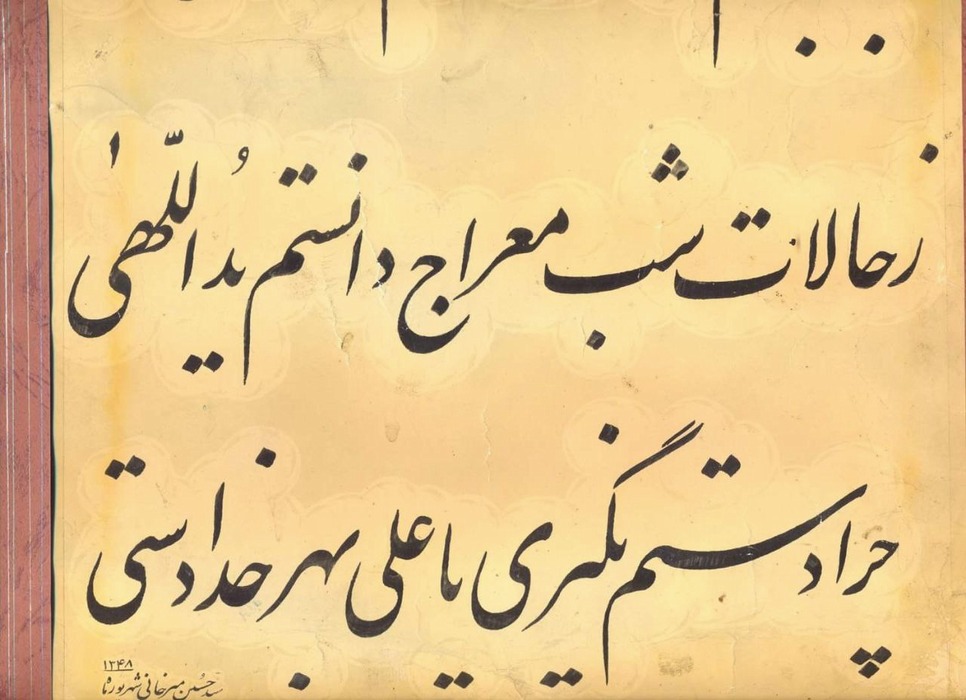 زحالات شب معراج دانستم یدُ اللّهیٰ
چرا دستم نگیری یا علی بهر خدا دستی
۱۳۴۸
سید حسین میرخانی شهریورماه